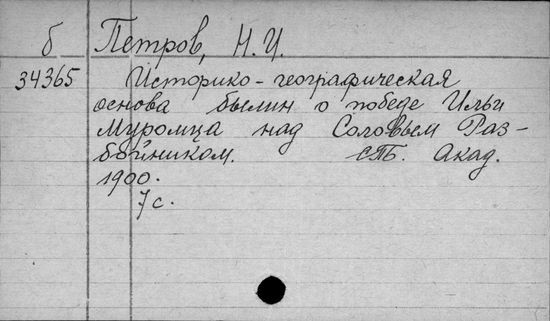 б Петров, Н. И.
34365 Историко-географическая
основа былин о победе Ильи
Муромца над Соловьем Раз-
бойником. СПБ. Акад.
1900.
7 с.